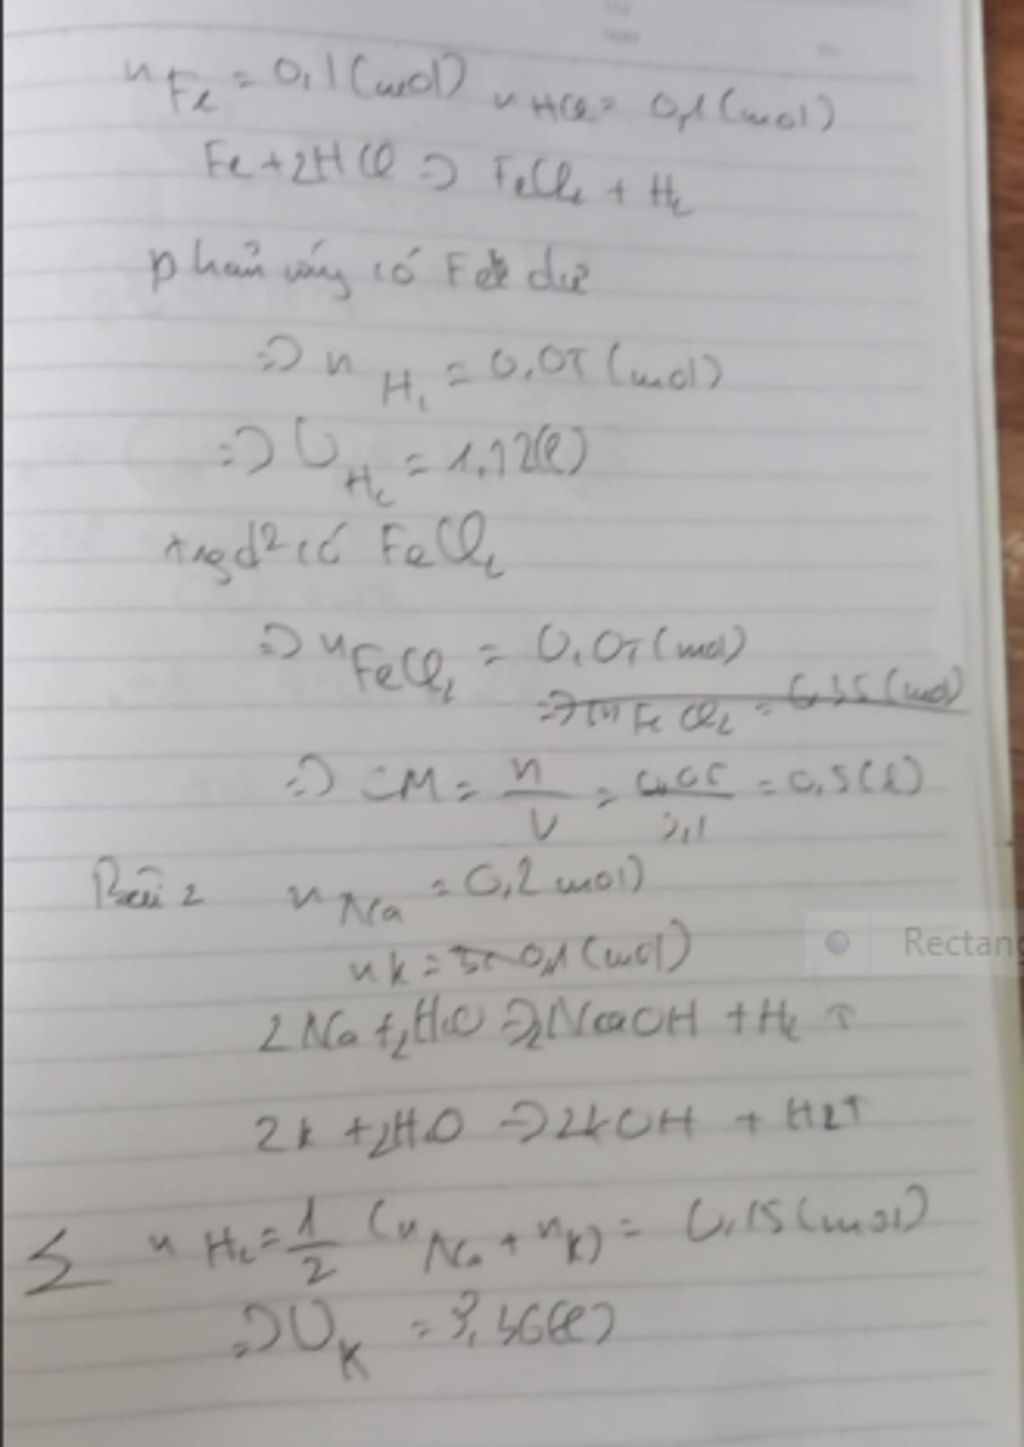 n Fe = 0,1 (mol) n HCl = 0,1 (mol)
Fe + 2HCl => FeCl2 + H2
phản ứng có Fe dư
=> n H2 = 0,05 (mol)
=> V H2 = 1,12(l)
trg d2 có FeCl2
=> n FeCl2 = 0,05 (mol)
=> m FeCl2 = 6,35 (mol)
=> CM = n/V = 0,05/0,1 = 0,5 (l)
Bài 2 n Na = 0,2 mol)
nk = 0,1 (mol)
2Na + 2H2O => 2NaOH + H2 ↑
2k + 2H2O => 2kOH + H2↑
Σ n H2 = 1/2 (n Na + n K) = 0,15 (mol)
=> V K = 3,36(l)
Rectang